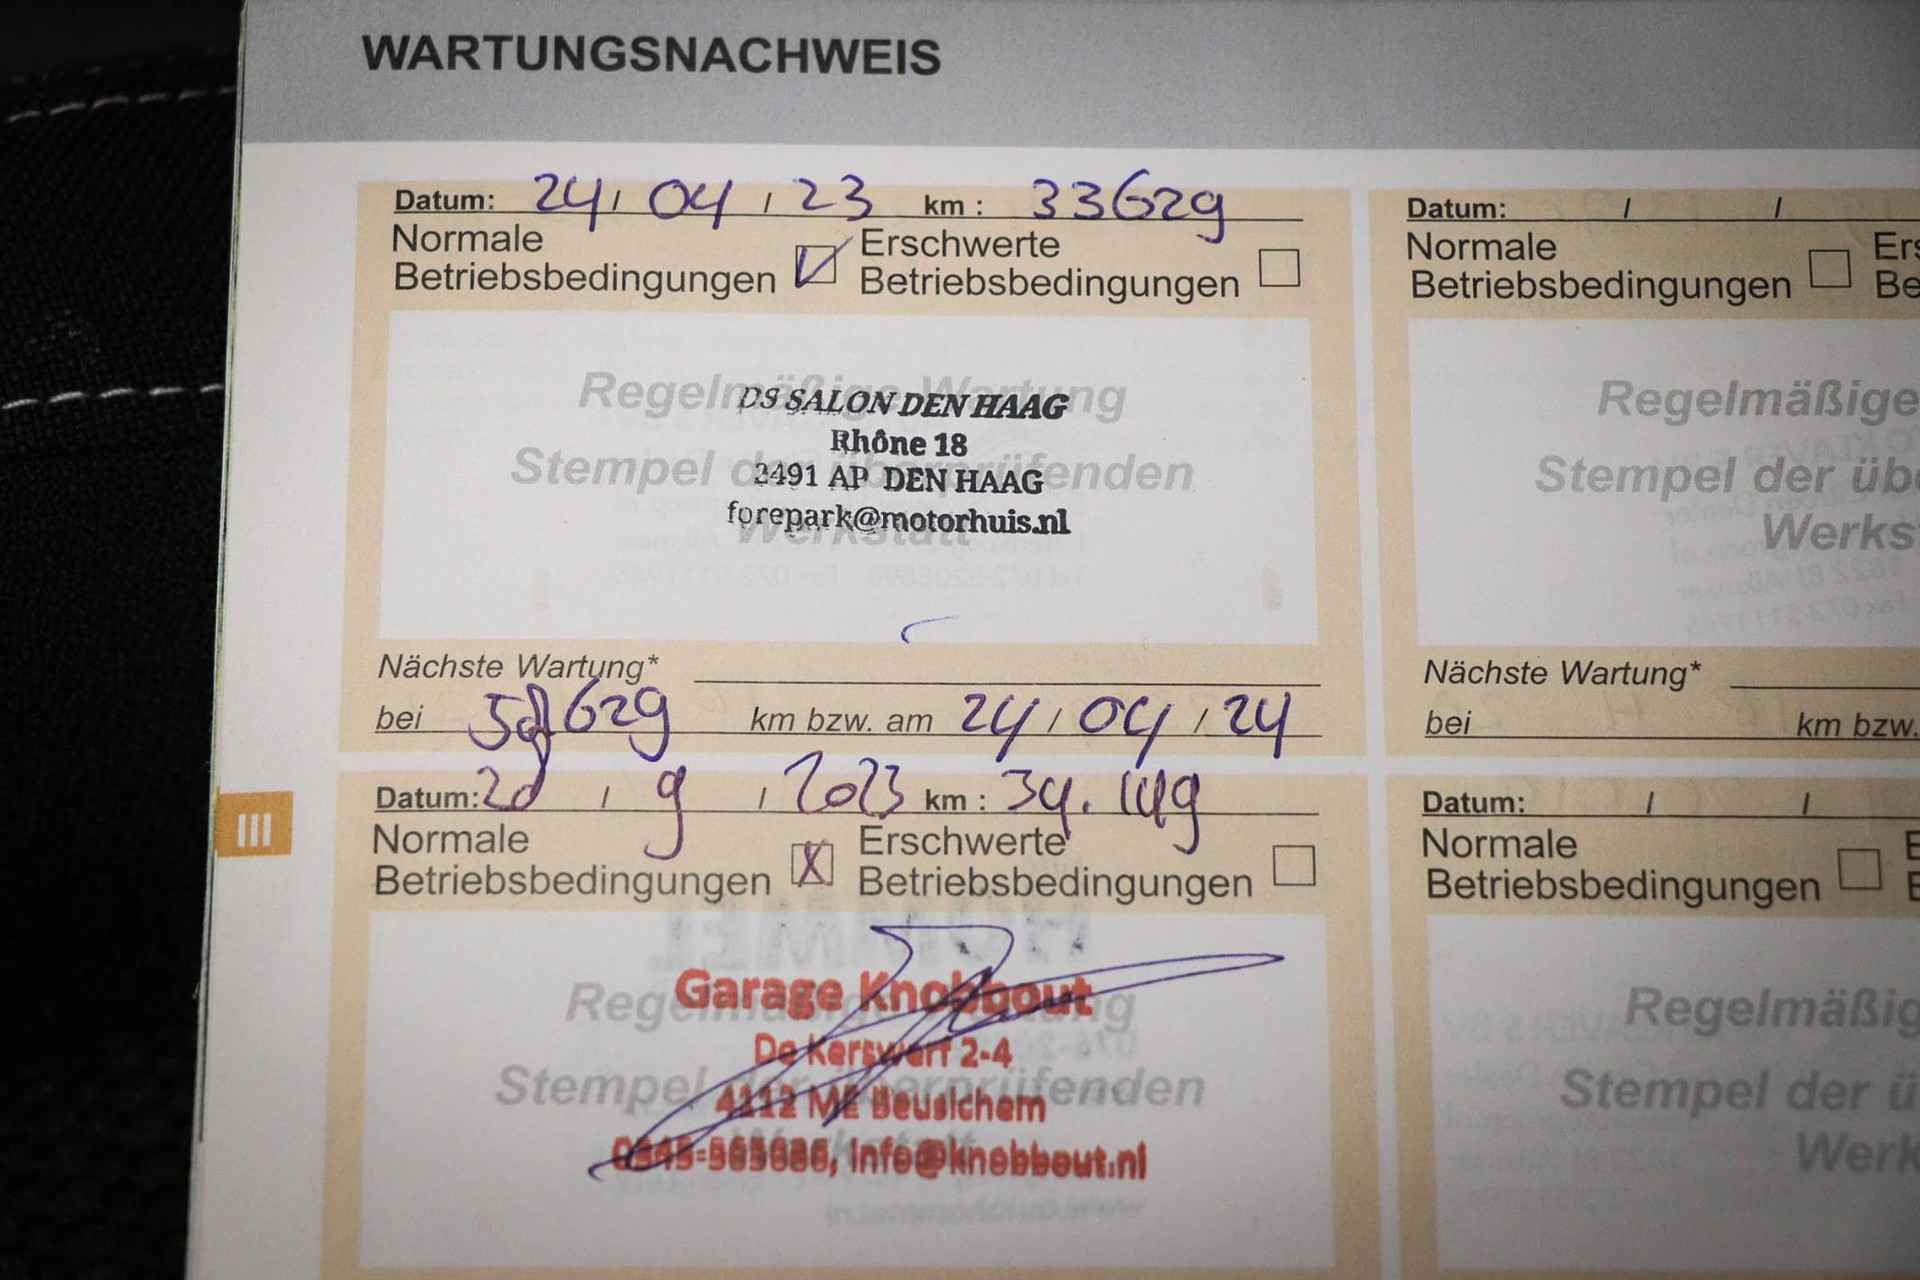 WARTUNGSNACHWEIS
Datum: 24 / 04 / 23 km : 33629
Normale Betriebsbedingungen
Erschwerte Betriebsbedingungen
Regelmäßige Wartung
Stempel der überprüfenden
Werkstatt
DS SALON DEN HAAG
Rhône 18
2491 AP DEN HAAG
forepark@motorhuis.nl
Nächste Wartung*
bei km bzw. am 24 / 04 / 24
Datum: / 9 / 2023 km :
Normale Betriebsbedingungen
X
Erschwerte Betriebsbedingungen
Regelmäßige Wartung
Stempel der überprüfenden
Werkstatt
Garage Knobbout
De Kerswerf 2-4
Beusichem
info@knobbout.nl
III
Datum: / /
Normale Betriebsbedingungen
Ers
Be
Regelmäßige
Stempel der übe
Werks
Nächste Wartung*
bei km bzw.
Datum: / /
Normale Betriebsbedingungen
Regelmäßig
Stempel der ü
Werk